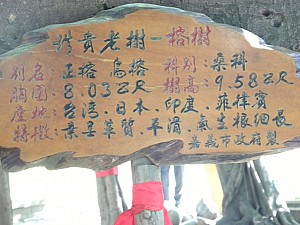 珍貴老樹－榕樹
別名：正榕．鳥榕 科別：桑科
胸圍：8.03公尺 樹高：9.58公尺
產地：台湾．日本．印度．菲律賓
特徵：葉呈革質．平滑．氣生根細長
嘉義市政府製